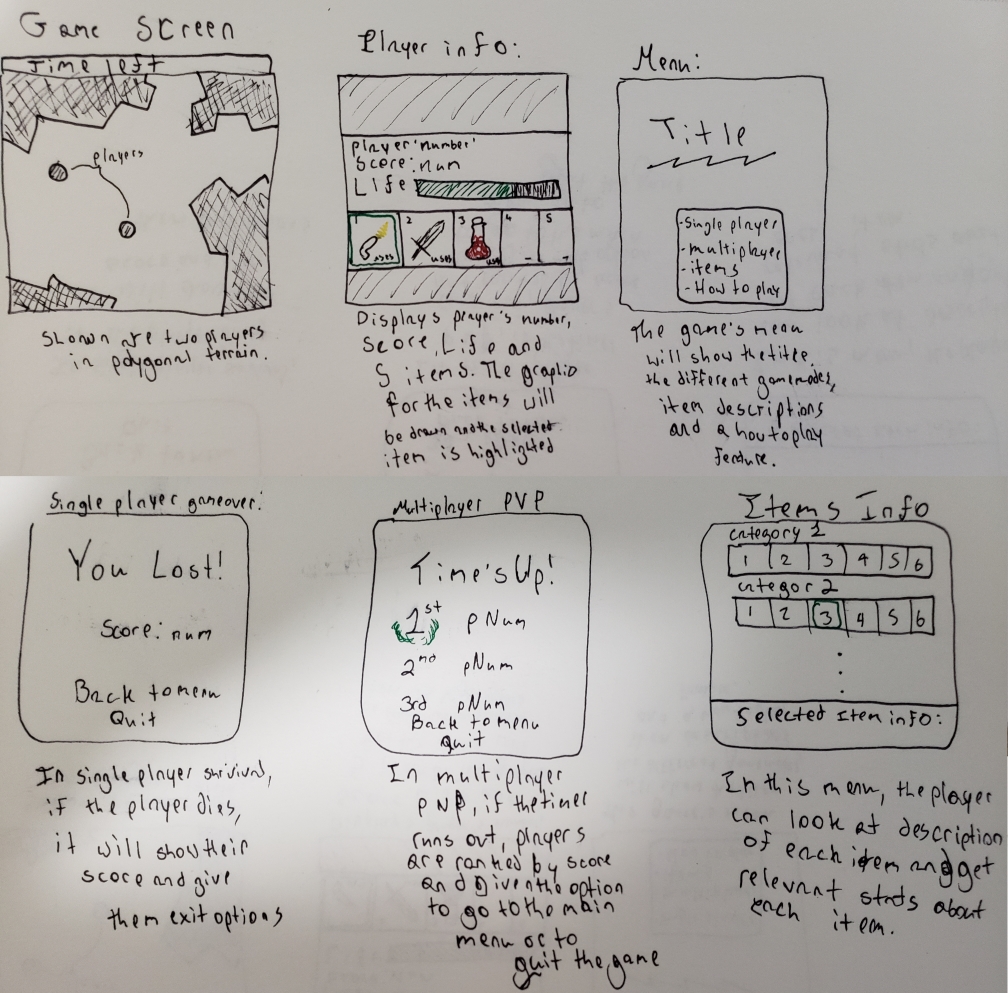 Game Screen
Time left
players
Shown are two players
in polygonal terrain.
Player info:
player 'number'
Score: num
Life
1 2 3 4 5
uses uses uses - -
Displays player's number,
Score, Life and
5 items. The graphic
for the items will
be drawn and the selected
item is highlighted
Menu:
Title
-Single player
-multiplayer
-items
-How to play
The game's menu
will show the title,
the different gamemodes,
item descriptions
and a how to play
feature.
Single player gameover:
You Lost!
Score: num
Back to menu
Quit
In single player survival,
if the player dies,
it will show their
score and give
them exit options
Multiplayer PVP
Time's Up!
1st pNum
2nd pNum
3rd pNum
Back to menu
Quit
In multiplayer
PVP, if the timer
runs out, players
are ranked by score
and given the option
to go to the main
menu or to
quit the game
Items Info
category 1
1 2 3 4 5 6
categor 2
1 2 3 4 5 6
Selected Item info:
In this menu, the player
can look at description
of each item and get
relevant stats about
each item.